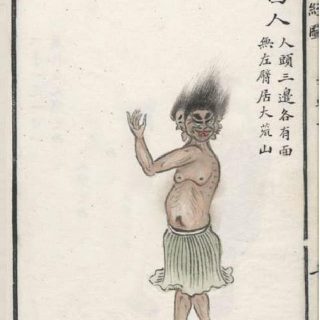 人
人頭三邊各有面
無左臂居大荒山